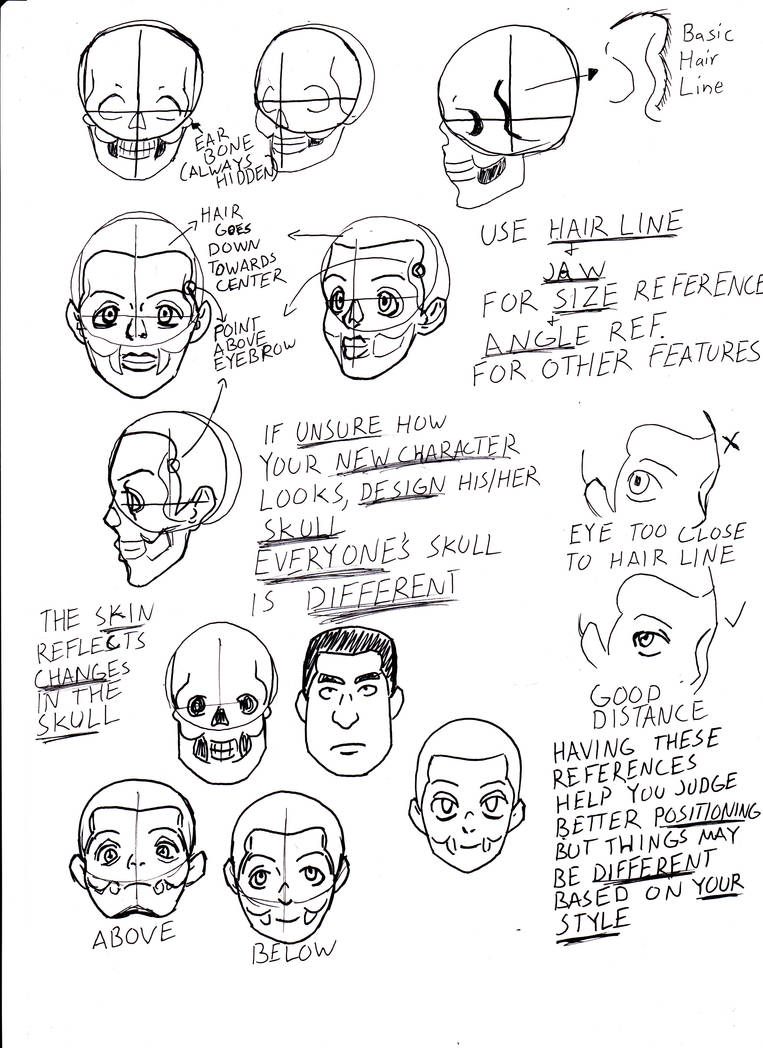 Basic
Hair
Line
EAR
BONE
(ALWAYS
HIDDEN)
HAIR
GOES
DOWN
TOWARDS
CENTER
POINT
ABOVE
EYEBROW
USE HAIR LINE
+
JAW
FOR SIZE REFERENCE
+
ANGLE REF.
FOR OTHER FEATURES
IF UNSURE HOW
YOUR NEW CHARACTER
LOOKS, DESIGN HIS/HER
SKULL
EVERYONE'S SKULL
IS DIFFERENT
EYE TOO CLOSE
TO HAIR LINE
THE SKIN
REFLECTS
CHANGES
IN THE
SKULL
GOOD
DISTANCE
HAVING THESE
REFERENCES
HELP YOU JUDGE
BETTER POSITIONING
BUT THINGS MAY
BE DIFFERENT
BASED ON YOUR
STYLE
ABOVE
BELOW